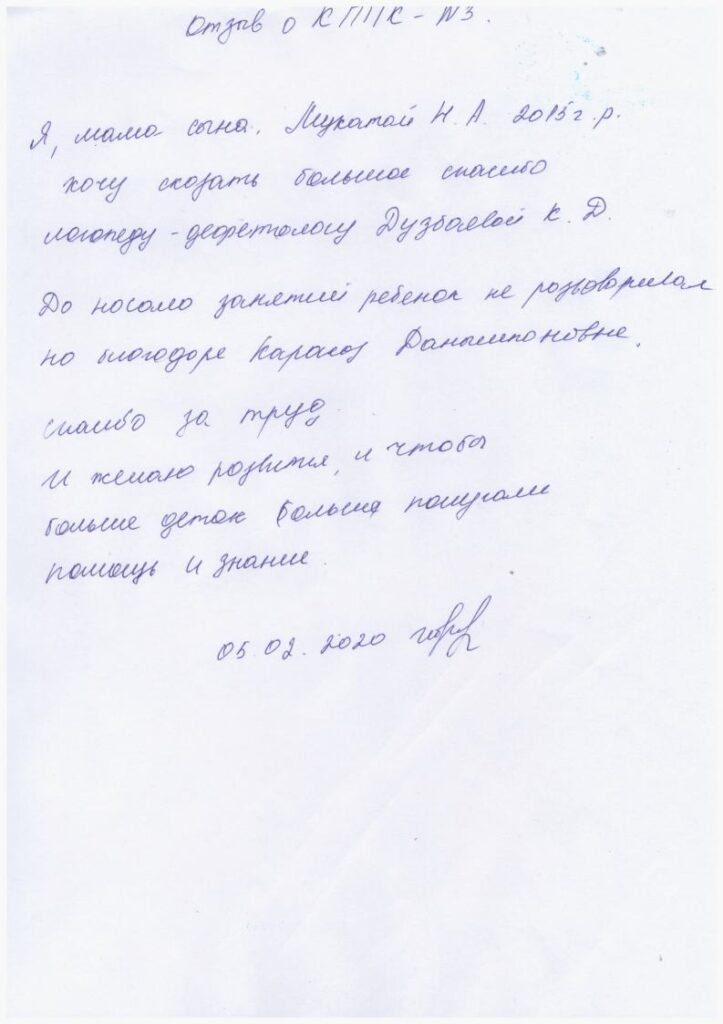 Отзыв о КППК - №3.
Я, мама сына. Мукатай Н. А. 2015 г.р.
хочу сказать большое спасибо
логопеду - дефектологу Дузбаевой К. Д.
До начало занятий ребенок не разговаривал
но благодоре Карагоз Данышпановне.
спасибо за труд.
И желаю развитя, и чтобы
больше деток больше получали
помощь и знание.
05.02.2020